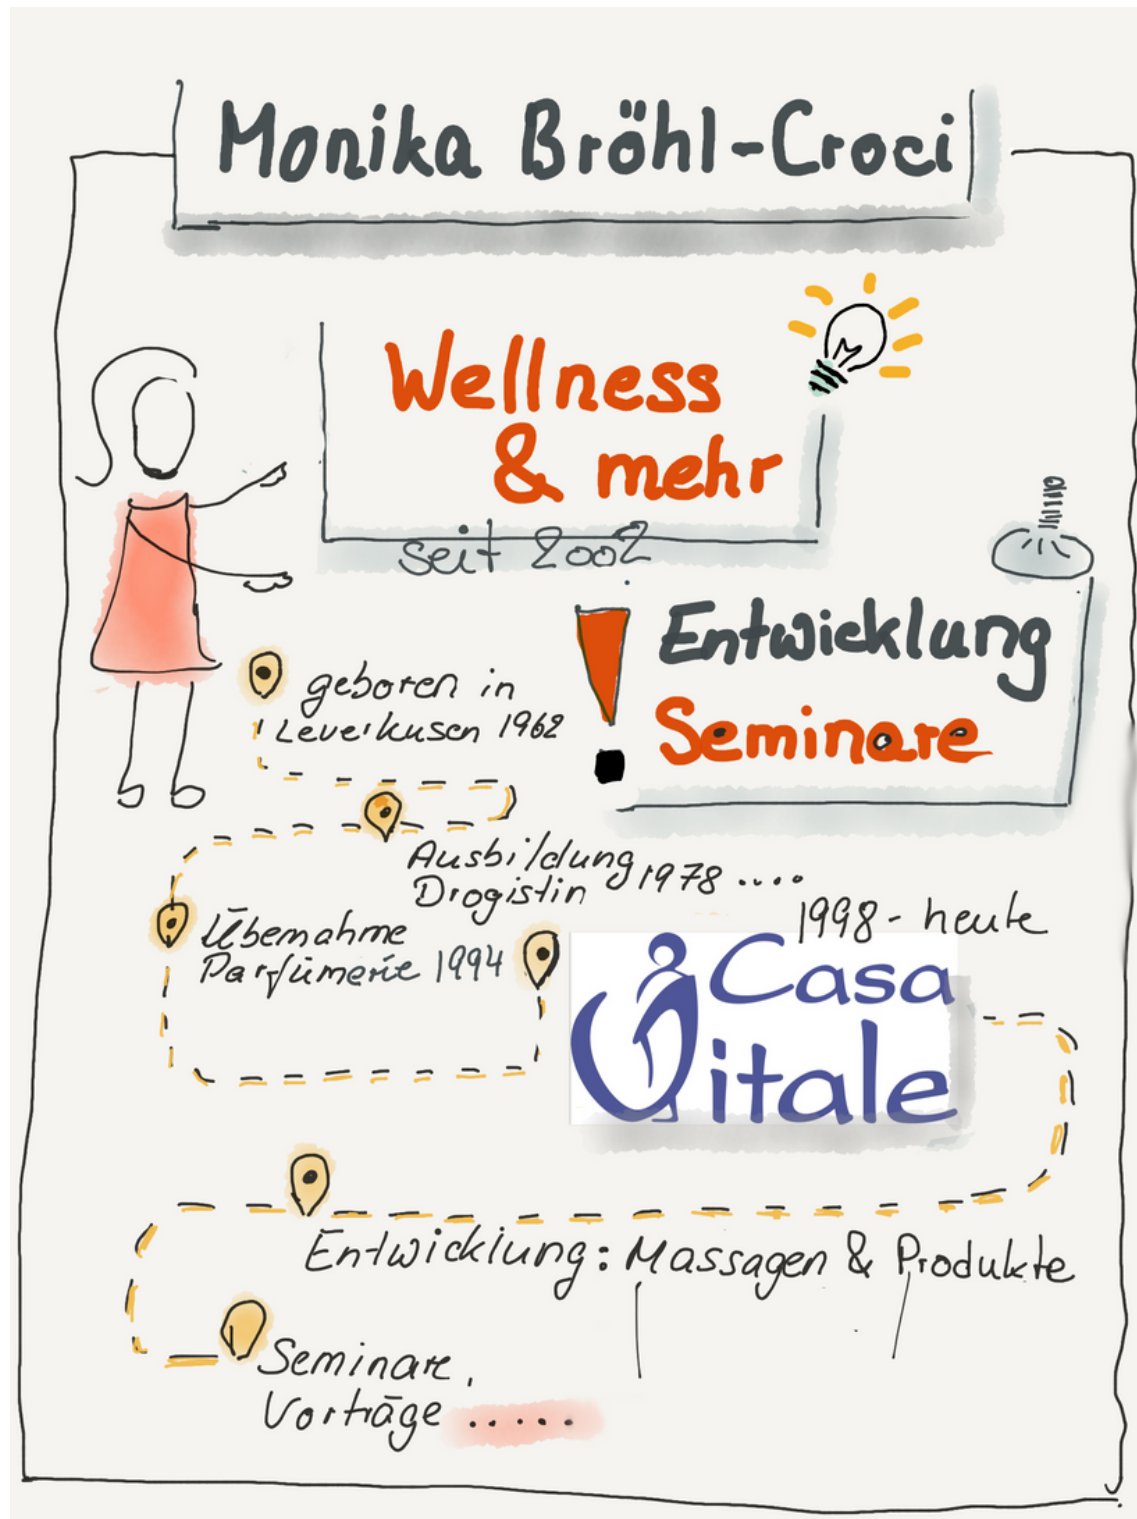 Monika Bröhl-Croci
Wellness
& mehr
seit 2002
Entwicklung
Seminare
geboren in
Leverkusen 1962
Ausbildung 1978 ....
Drogistin
Übernahme
Parfümerie 1994
1998 - heute
Casa
Vitale
Entwicklung: Massagen & Produkte
Seminare,
Vorträge .....